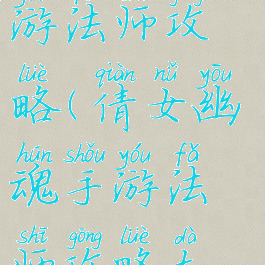 游法师攻
lüè qiàn nǚ yōu
略(倩女幽
hún shǒu yóu fǎ
魂手游法
shī gōng lüè dà